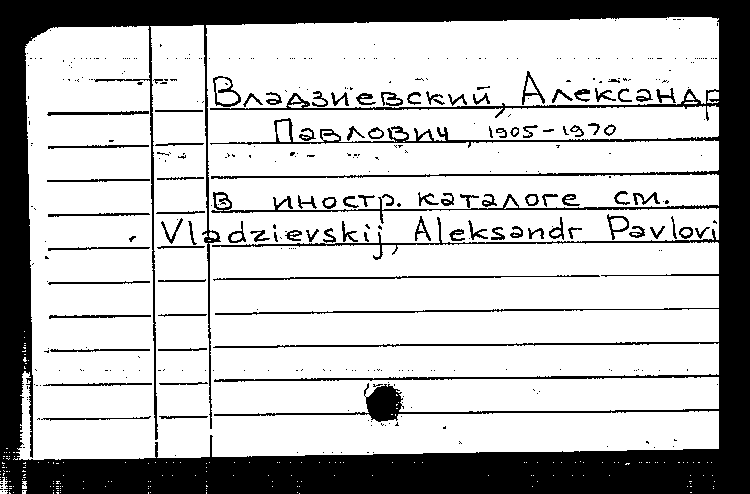 Владзиевский, Александр
Павлович, 1905-1970
в иностр. каталоге см.
Vladzievskij, Aleksandr Pavlovi